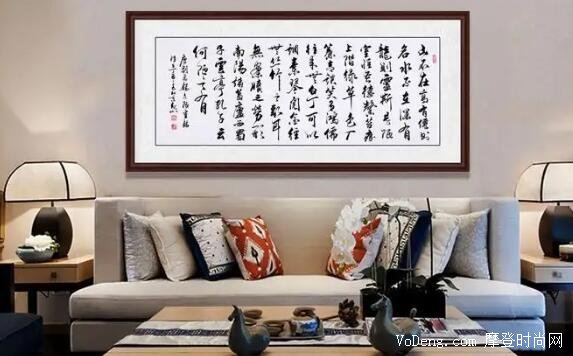 山不在高有僊則
名水不在深有
龍則靈斯是陋
室惟吾德馨苔痕
上階緑草色入
簾青談笑有鴻儒
往來無白丁可以
調素琴閱金經
無絲竹之亂耳
無案牘之勞形
南陽諸葛廬西蜀
子雲亭孔子云
何陋之有
唐劉禹錫陋室銘
VoDeng.com 摩登时尚网